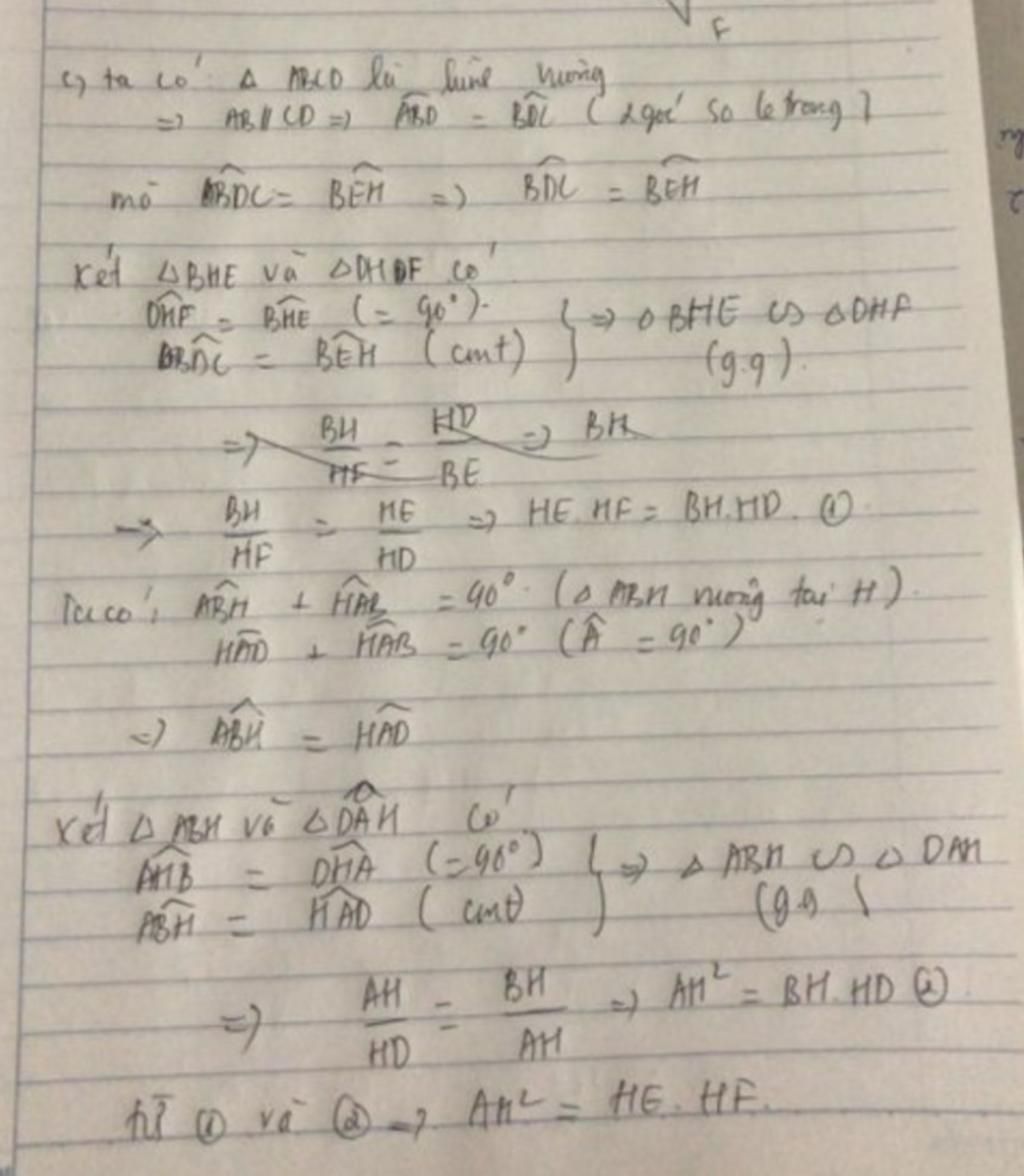 F
c, ta có: Δ ABCD là hình vuông
=> AB // CD => \widehat{ABD} = \widehat{BDC} ( 2 góc so le trong )
mà \widehat{ABDC} = \widehat{BEH} => \widehat{BDC} = \widehat{BEH}
Xét ΔBHE và ΔDHDF có
\widehat{DHF} = \widehat{BHE} (= 90°). } => Δ BHE ∽ ΔDHF
\widehat{BDC} = \widehat{BEH} (cmt) (g.g).
=> BH/HF = HD/BE => BH
=> BH/HF = HE/HD => HE.HF = BH.HD. ①
Ta có: \widehat{ABH} + \widehat{HAB} = 90° (Δ ABH vuông tại H).
\widehat{HAD} + \widehat{HAB} = 90° (\widehat{A} = 90°)
=> \widehat{ABH} = \widehat{HAD}
Xét Δ ABH và ΔDAH có
\widehat{AHB} = \widehat{DHA} (= 90°) } => Δ ABH ∽ Δ DAH
\widehat{ABH} = \widehat{HAD} ( cmt) (g.g )
=> AH/HD = BH/AH => AH² = BH.HD ②
từ ① và ② => AH² = HE.HF.